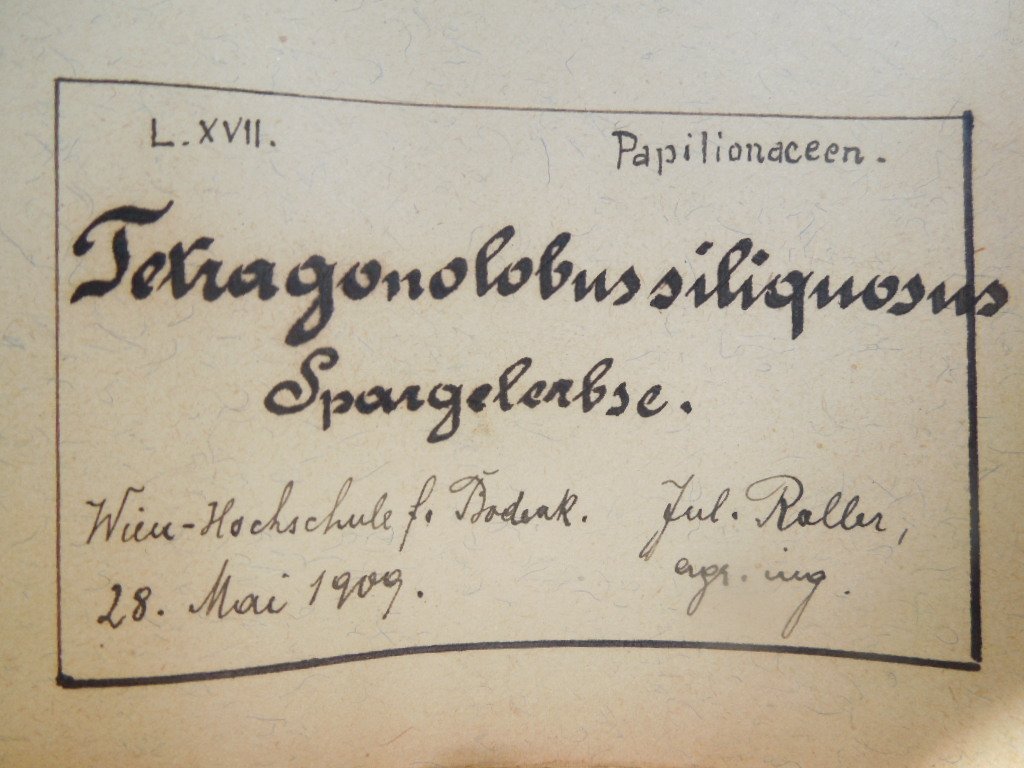 L. XVII.
Papilionaceen.
Tetragonolobus siliquosus
Spargelerbse.
Wien-Hochschule f. Bodenk.
Jul. Roller,
28. Mai 1909.
agr. ing.